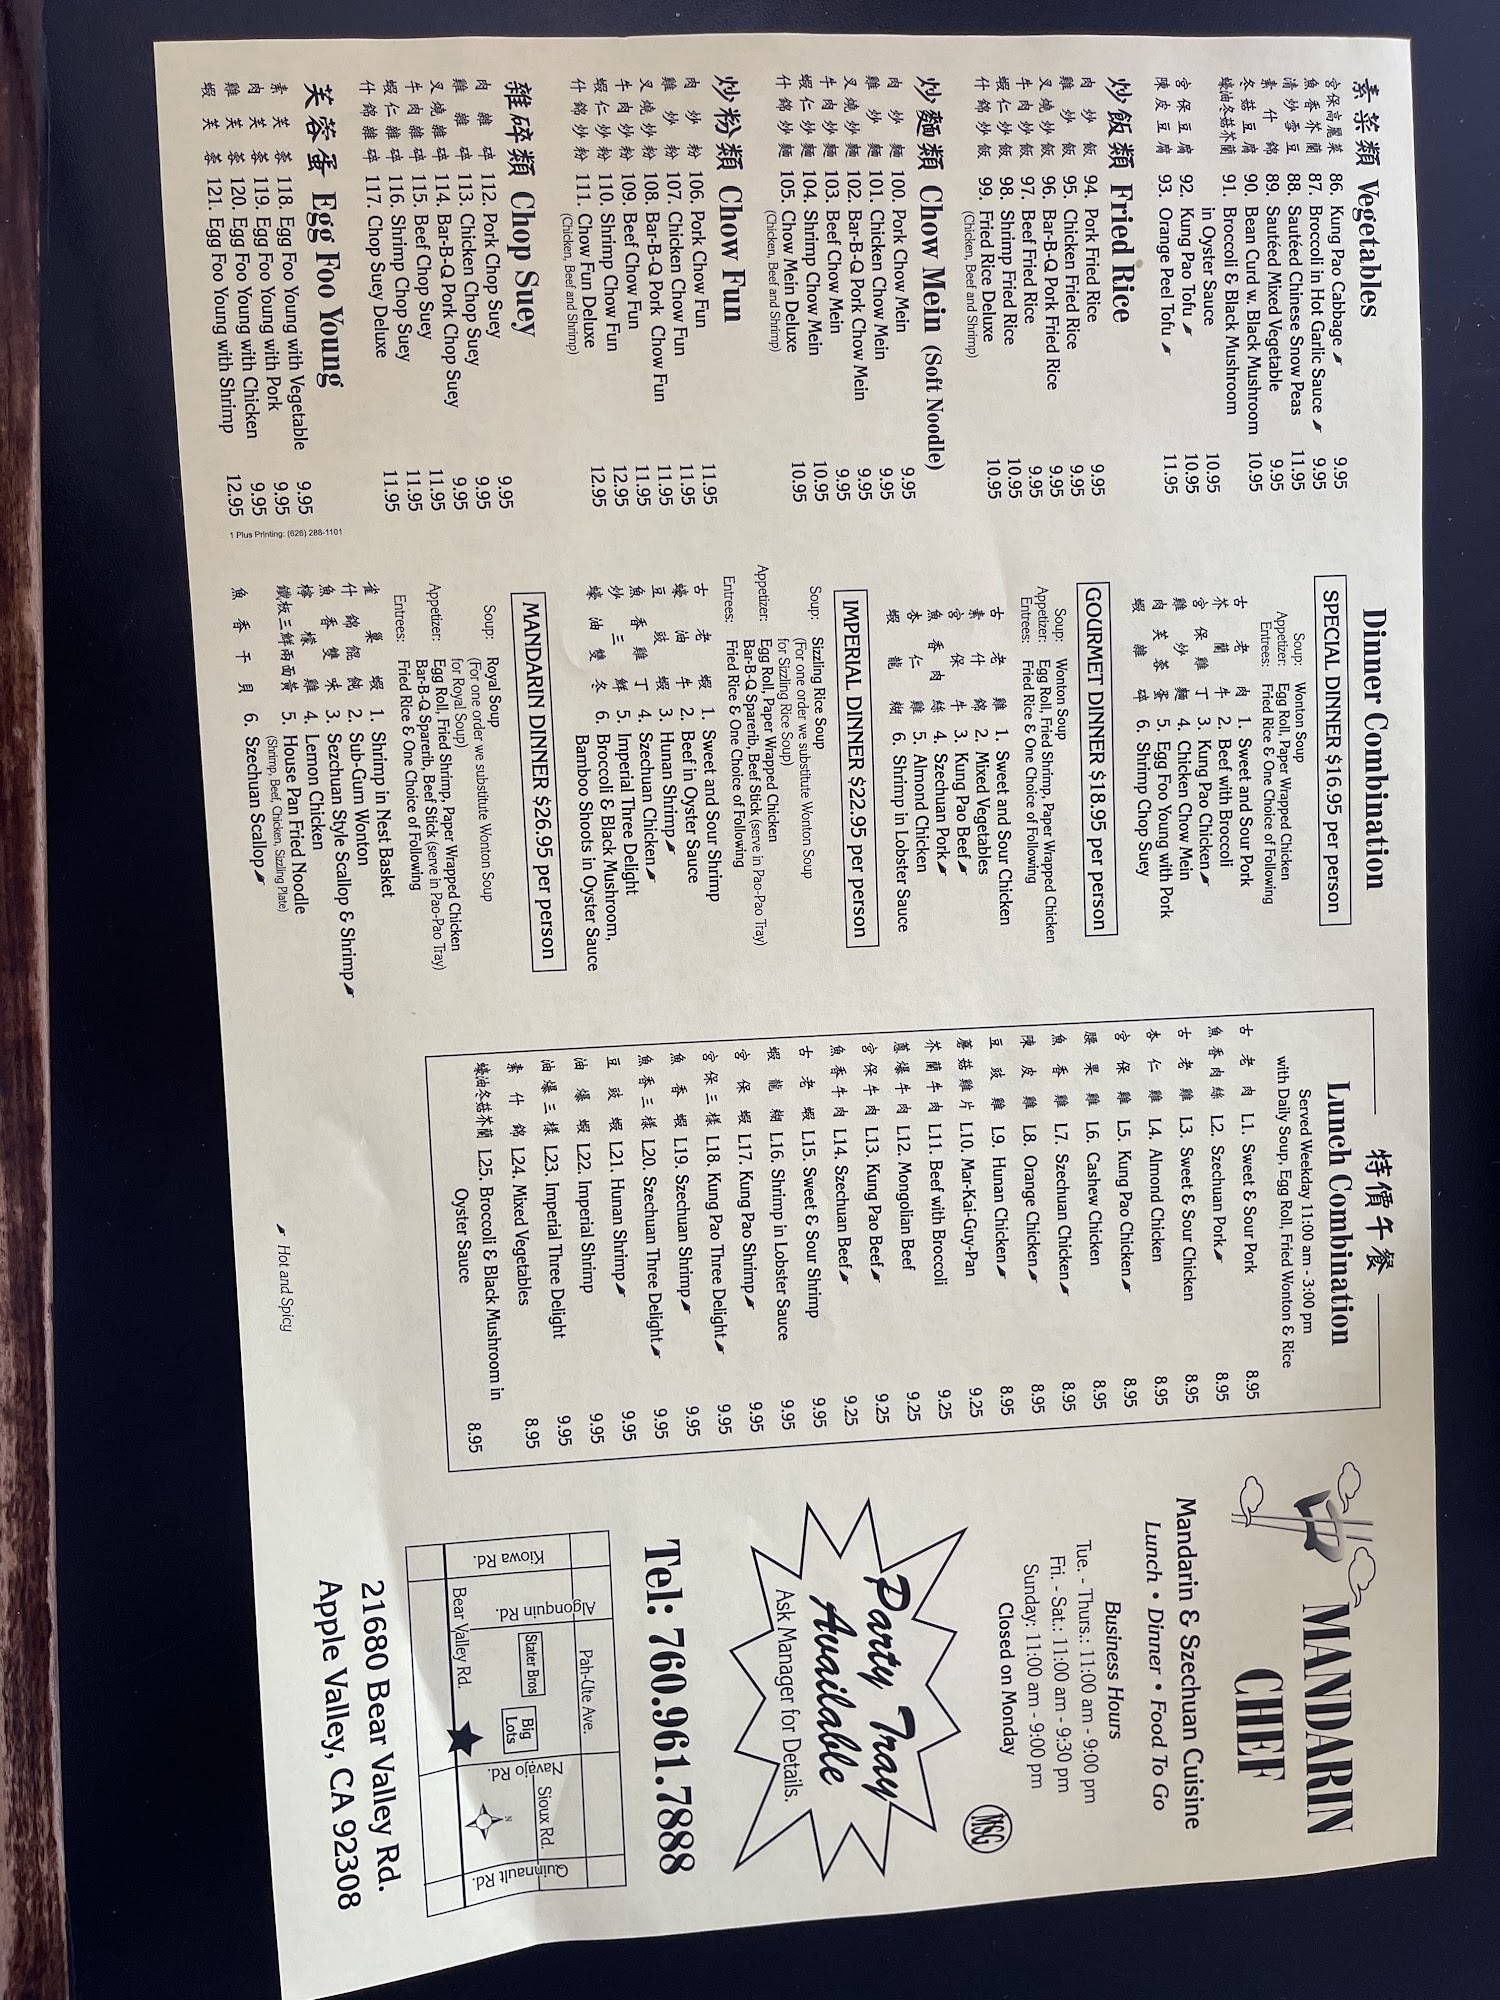 素菜類 Vegetables
宮保高麗菜 86. Kung Pao Cabbage 9.95
魚香芥蘭 87. Broccoli in Hot Garlic Sauce 9.95
清炒雪豆 88. Sautéed Chinese Snow Peas 11.95
素什錦 89. Sautéed Mixed Vegetable 9.95
冬菇豆腐 90. Bean Curd w. Black Mushroom 10.95
蠔油冬菇芥蘭 91. Broccoli & Black Mushroom
in Oyster Sauce 10.95
宮保豆腐 92. Kung Pao Tofu 10.95
陳皮豆腐 93. Orange Peel Tofu 11.95
炒飯類 Fried Rice
肉炒飯 94. Pork Fried Rice 9.95
雞炒飯 95. Chicken Fried Rice 9.95
叉燒炒飯 96. Bar-B-Q Pork Fried Rice 9.95
牛肉炒飯 97. Beef Fried Rice 9.95
蝦仁炒飯 98. Shrimp Fried Rice 10.95
什錦炒飯 99. Fried Rice Deluxe 10.95
(Chicken, Beef and Shrimp)
炒麵類 Chow Mein (Soft Noodle)
肉炒麵 100. Pork Chow Mein 9.95
雞炒麵 101. Chicken Chow Mein 9.95
叉燒炒麵 102. Bar-B-Q Pork Chow Mein 9.95
牛肉炒麵 103. Beef Chow Mein 9.95
蝦仁炒麵 104. Shrimp Chow Mein 10.95
什錦炒麵 105. Chow Mein Deluxe 10.95
(Chicken, Beef and Shrimp)
炒粉類 Chow Fun
肉炒粉 106. Pork Chow Fun 11.95
雞炒粉 107. Chicken Chow Fun 11.95
叉燒炒粉 108. Bar-B-Q Pork Chow Fun 11.95
牛肉炒粉 109. Beef Chow Fun 11.95
蝦仁炒粉 110. Shrimp Chow Fun 12.95
什錦炒粉 111. Chow Fun Deluxe 12.95
(Chicken, Beef and Shrimp)
雜碎類 Chop Suey
肉雜碎 112. Pork Chop Suey 9.95
雞雜碎 113. Chicken Chop Suey 9.95
叉燒雜碎 114. Bar-B-Q Pork Chop Suey 9.95
牛肉雜碎 115. Beef Chop Suey 11.95
蝦仁雜碎 116. Shrimp Chop Suey 11.95
什錦雜碎 117. Chop Suey Deluxe 11.95
芙蓉蛋 Egg Foo Young
素芙蓉 118. Egg Foo Young with Vegetable 9.95
肉芙蓉 119. Egg Foo Young with Pork 9.95
雞芙蓉 120. Egg Foo Young with Chicken 9.95
蝦芙蓉 121. Egg Foo Young with Shrimp 12.95
1 Plus Printing: (626) 288-1101
Dinner Combination
SPECIAL DINNER $16.95 per person
Soup: Wonton Soup
Appetizer: Egg Roll, Paper Wrapped Chicken
Entrees: Fried Rice & One Choice of Following
古老肉 1. Sweet and Sour Pork
芥蘭牛 2. Beef with Broccoli
宮保雞丁 3. Kung Pao Chicken
雞炒麵 4. Chicken Chow Mein
肉芙蓉蛋 5. Egg Foo Young with Pork
蝦雜碎 6. Shrimp Chop Suey
GOURMET DINNER $18.95 per person
Soup: Wonton Soup
Appetizer: Egg Roll, Fried Shrimp, Paper Wrapped Chicken
Entrees: Fried Rice & One Choice of Following
古老雞 1. Sweet and Sour Chicken
素什錦 2. Mixed Vegetables
宮保牛 3. Kung Pao Beef
魚香肉絲 4. Szechuan Pork
杏仁雞 5. Almond Chicken
蝦龍糊 6. Shrimp in Lobster Sauce
IMPERIAL DINNER $22.95 per person
Soup: Sizzling Rice Soup
(For one order we substitute Wonton Soup
for Sizzling Rice Soup)
Appetizer: Egg Roll, Paper Wrapped Chicken
Bar-B-Q Sparerib, Beef Stick (serve in Pao-Pao Tray)
Entrees: Fried Rice & One Choice of Following
古老蝦 1. Sweet and Sour Shrimp
蠔油牛 2. Beef in Oyster Sauce
豆豉蝦 3. Hunan Shrimp
魚香雞丁 4. Szechuan Chicken
炒三鮮 5. Imperial Three Delight
蠔油雙冬 6. Broccoli & Black Mushroom,
Bamboo Shoots in Oyster Sauce
MANDARIN DINNER $26.95 per person
Soup: Royal Soup
(For one order we substitute Wonton Soup
for Royal Soup)
Appetizer: Egg Roll, Fried Shrimp, Paper Wrapped Chicken
Bar-B-Q Sparerib, Beef Stick (serve in Pao-Pao Tray)
Entrees: Fried Rice & One Choice of Following
雀巢蝦 1. Shrimp in Nest Basket
什錦餛飩 2. Sub-Gum Wonton
魚香雙味 3. Sezchuan Style Scallop & Shrimp
檸檬雞 4. Lemon Chicken
鐵板三鮮兩面黃 5. House Pan Fried Noodle
(Shrimp, Beef, Chicken, Sizzling Plate)
魚香干貝 6. Szechuan Scallop
特價午餐
Lunch Combination
Served Weekday 11:00 am - 3:00 pm
with Daily Soup, Egg Roll, Fried Wonton & Rice
古老肉 L1. Sweet & Sour Pork 8.95
魚香肉絲 L2. Szechuan Pork 8.95
古老雞 L3. Sweet & Sour Chicken 8.95
杏仁雞 L4. Almond Chicken 8.95
宮保雞 L5. Kung Pao Chicken 8.95
腰果雞 L6. Cashew Chicken 8.95
魚香雞 L7. Szechuan Chicken 8.95
陳皮雞 L8. Orange Chicken 8.95
豆豉雞 L9. Hunan Chicken 8.95
蘑菇雞片 L10. Mar-Kai-Guy-Pan 9.25
芥蘭牛肉 L11. Beef with Broccoli 9.25
蔥爆牛肉 L12. Mongolian Beef 9.25
宮保牛肉 L13. Kung Pao Beef 9.25
魚香牛肉 L14. Szechuan Beef 9.25
古老蝦 L15. Sweet & Sour Shrimp 9.95
蝦龍糊 L16. Shrimp in Lobster Sauce 9.95
宮保蝦 L17. Kung Pao Shrimp 9.95
宮保三樣 L18. Kung Pao Three Delight 9.95
魚香蝦 L19. Szechuan Shrimp 9.95
魚香三樣 L20. Szechuan Three Delight 9.95
豆豉蝦 L21. Hunan Shrimp 9.95
油爆蝦 L22. Imperial Shrimp 9.95
油爆三樣 L23. Imperial Three Delight 9.95
素什錦 L24. Mixed Vegetables 8.95
蠔油冬菇芥蘭 L25. Broccoli & Black Mushroom in
Oyster Sauce 8.95
Hot and Spicy
MANDARIN
CHEF
Mandarin & Szechuan Cuisine
Lunch • Dinner • Food To Go
Business Hours
Tue. - Thurs.: 11:00 am - 9:00 pm
Fri. - Sat.: 11:00 am - 9:30 pm
Sunday: 11:00 am - 9:00 pm
Closed on Monday
MSG
Party Tray
Available
Ask Manager for Details.
Tel: 760.961.7888
Kiowa Rd.
Algonquin Rd.
Pah-Ute Ave.
Stater Bros
Big
Lots
Navajo Rd.
Sioux Rd.
N
Quinnault Rd.
Bear Valley Rd.
21680 Bear Valley Rd.
Apple Valley, CA 92308